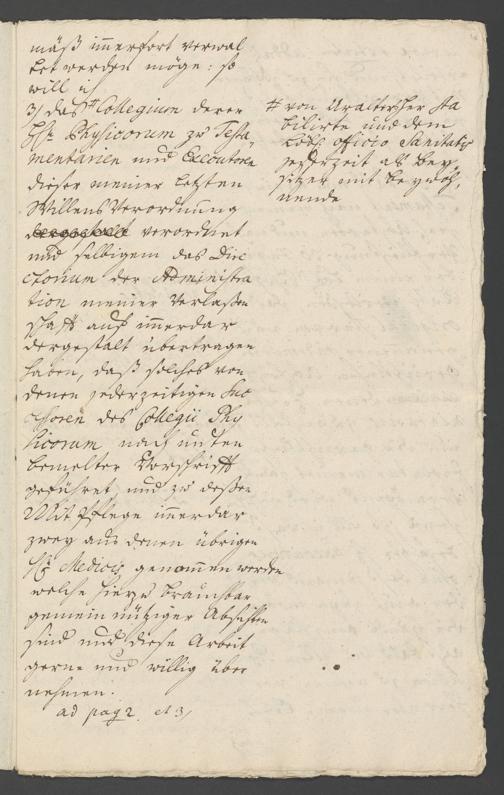 mäß immerfort verwal
tet werden möge: so
will ich
3) das # Collegium derer
Hh. Physicorum zu Testa
mentarien und Executoren
dieser meiner letzten
Willens Verordnung
dergestalt verordnet
und selbigem das Dire
ctorium der Administra
tion meiner Verlaßen
schafft auf immerdar
dergestalt übertragen
haben, daß solches von
denen jederzeitigen Suc
cessoren des Collegii Phy
sicorum nach unten
bemelter Vorschrifft
geführet und zu deßen
Mit Pflege immerdar
zwey aus denen übrigen
Hh. Medicis genommen werden
welche hierzu brauchbar
gemeinnütziger Absichten
sind und diese Arbeit
gerne und willig über
nehmen.
ad pag 2. et 3/
# von Uraltersher sta
bilirte und dem
Löbl. officio Sanitatis
jederzeit als Bey,
sitzer mit beywoh,
nende